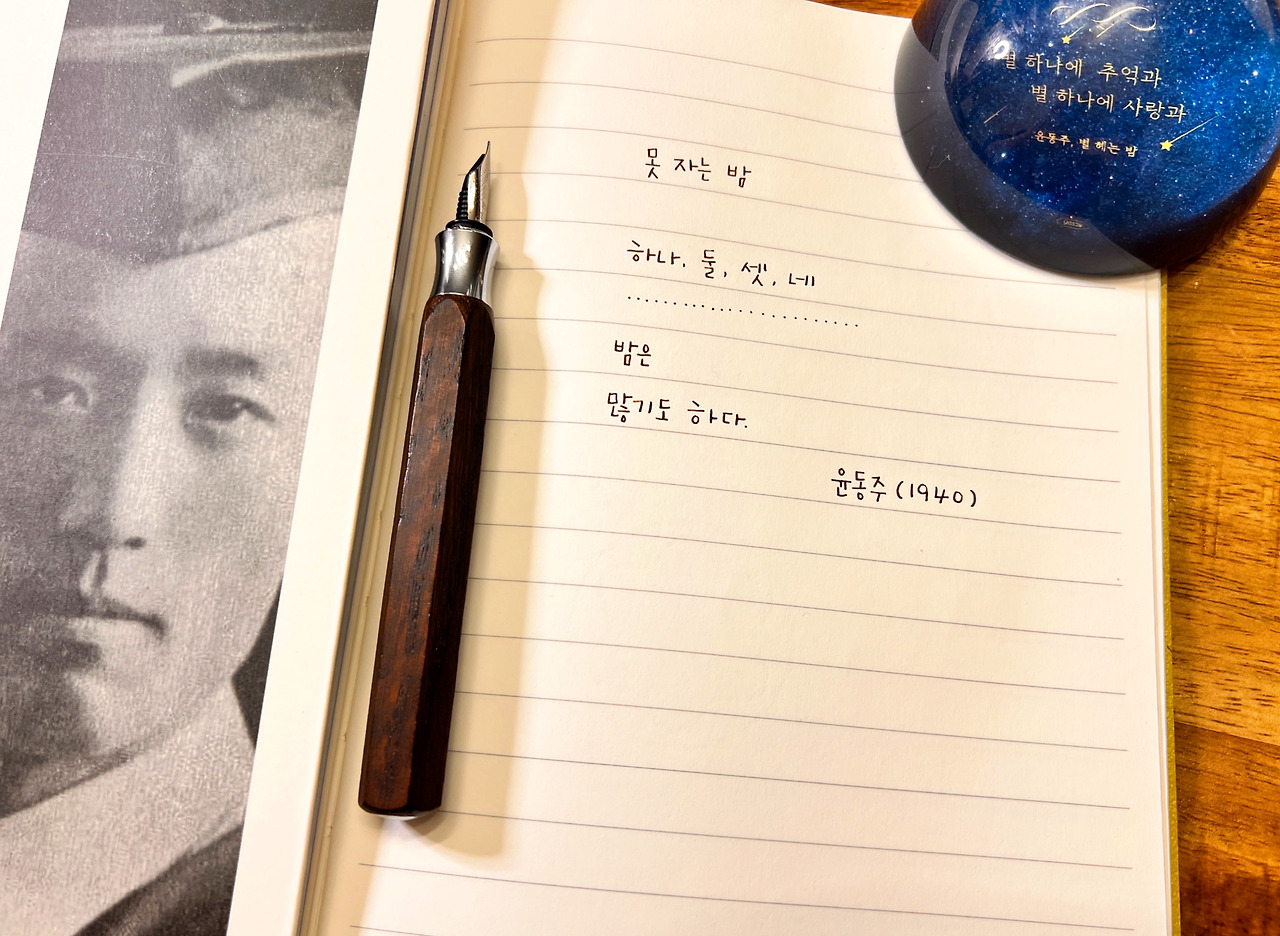 못 자는 밤
하나, 둘, 셋, 네
........................
밤은
많기도 하다.
윤동주 (1940)
별 하나에 추억과
별 하나에 사랑과
윤동주, 별 헤는 밤